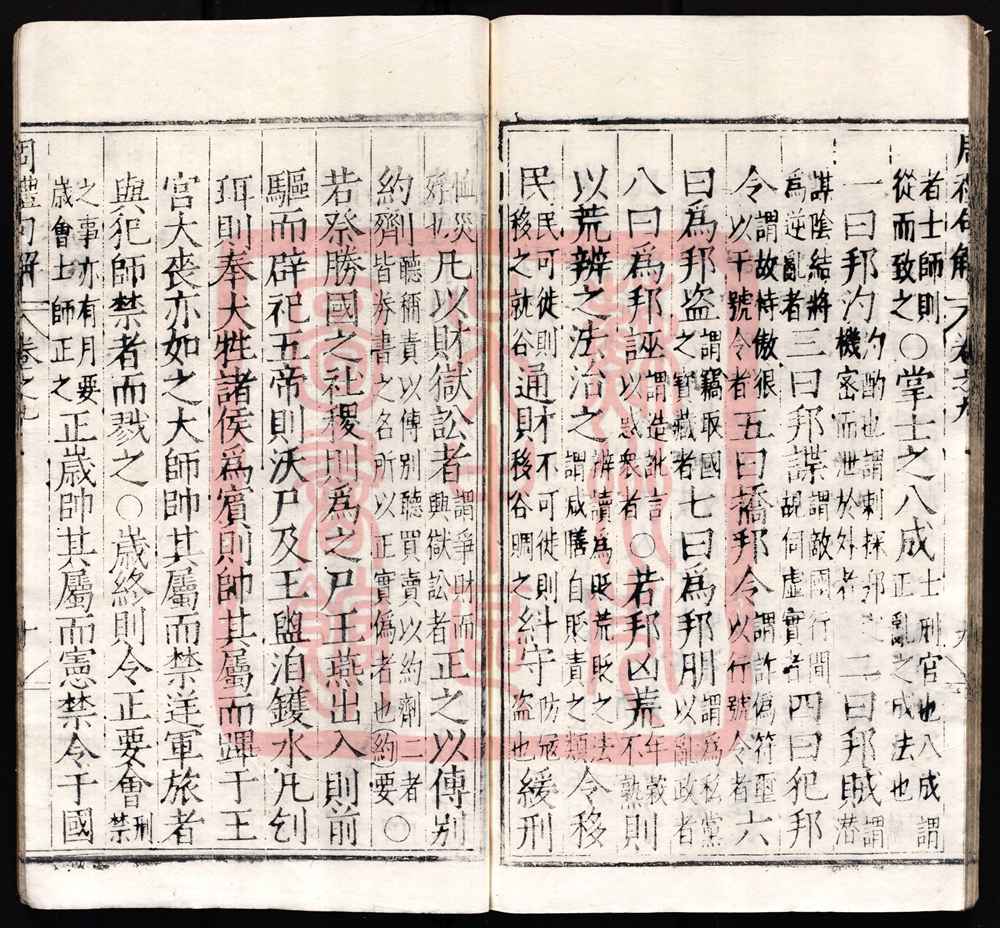 周禮句解 卷之九 九
者士師則從而致之○掌士之八成士刑官也八成謂正亂之成法也
一曰邦汋汋酌也謂刺探邦之機密而泄於外者二曰邦賊謂潜
謀陰結將為逆亂者三曰邦諜謂敵國行間覘伺虛實者四曰犯邦
令謂故恃傲很以干號令者五曰撟邦令謂詐偽符璽以行號令者六
曰爲邦盗謂竊取國之寳藏者七曰爲邦朋謂為私黨以亂政者
八曰爲邦誣謂造訛言以惑衆者○若邦凶荒年穀不熟則
以荒辨之法治之辨讀為貶荒貶之法謂咸膳自貶責之類令移
民民可徙則移之就谷通財財不可徙則移谷賙之糾守防冦盗也緩刑
恤災凡以財獄訟者謂爭財而興獄訟者正之以傅别
約劑則聽稱責以傅别聽買賣以約劑二者皆券書之名所以正實偽者也約要○
若祭勝國之社稷則爲之尸王燕出入則前
驅而辟祀五帝則沃尸及王盥洎鑊水凡刉
珥則奉犬牲諸侯爲賓則帥其屬而蹕于王
宫大喪亦如之大師帥其屬而禁逆軍旅者
與犯師禁者而戮之○歲終則令正要會刑禁
之事亦有月要歲會士師正之正歲帥其屬而憲禁令于國
周禮句解 卷之九